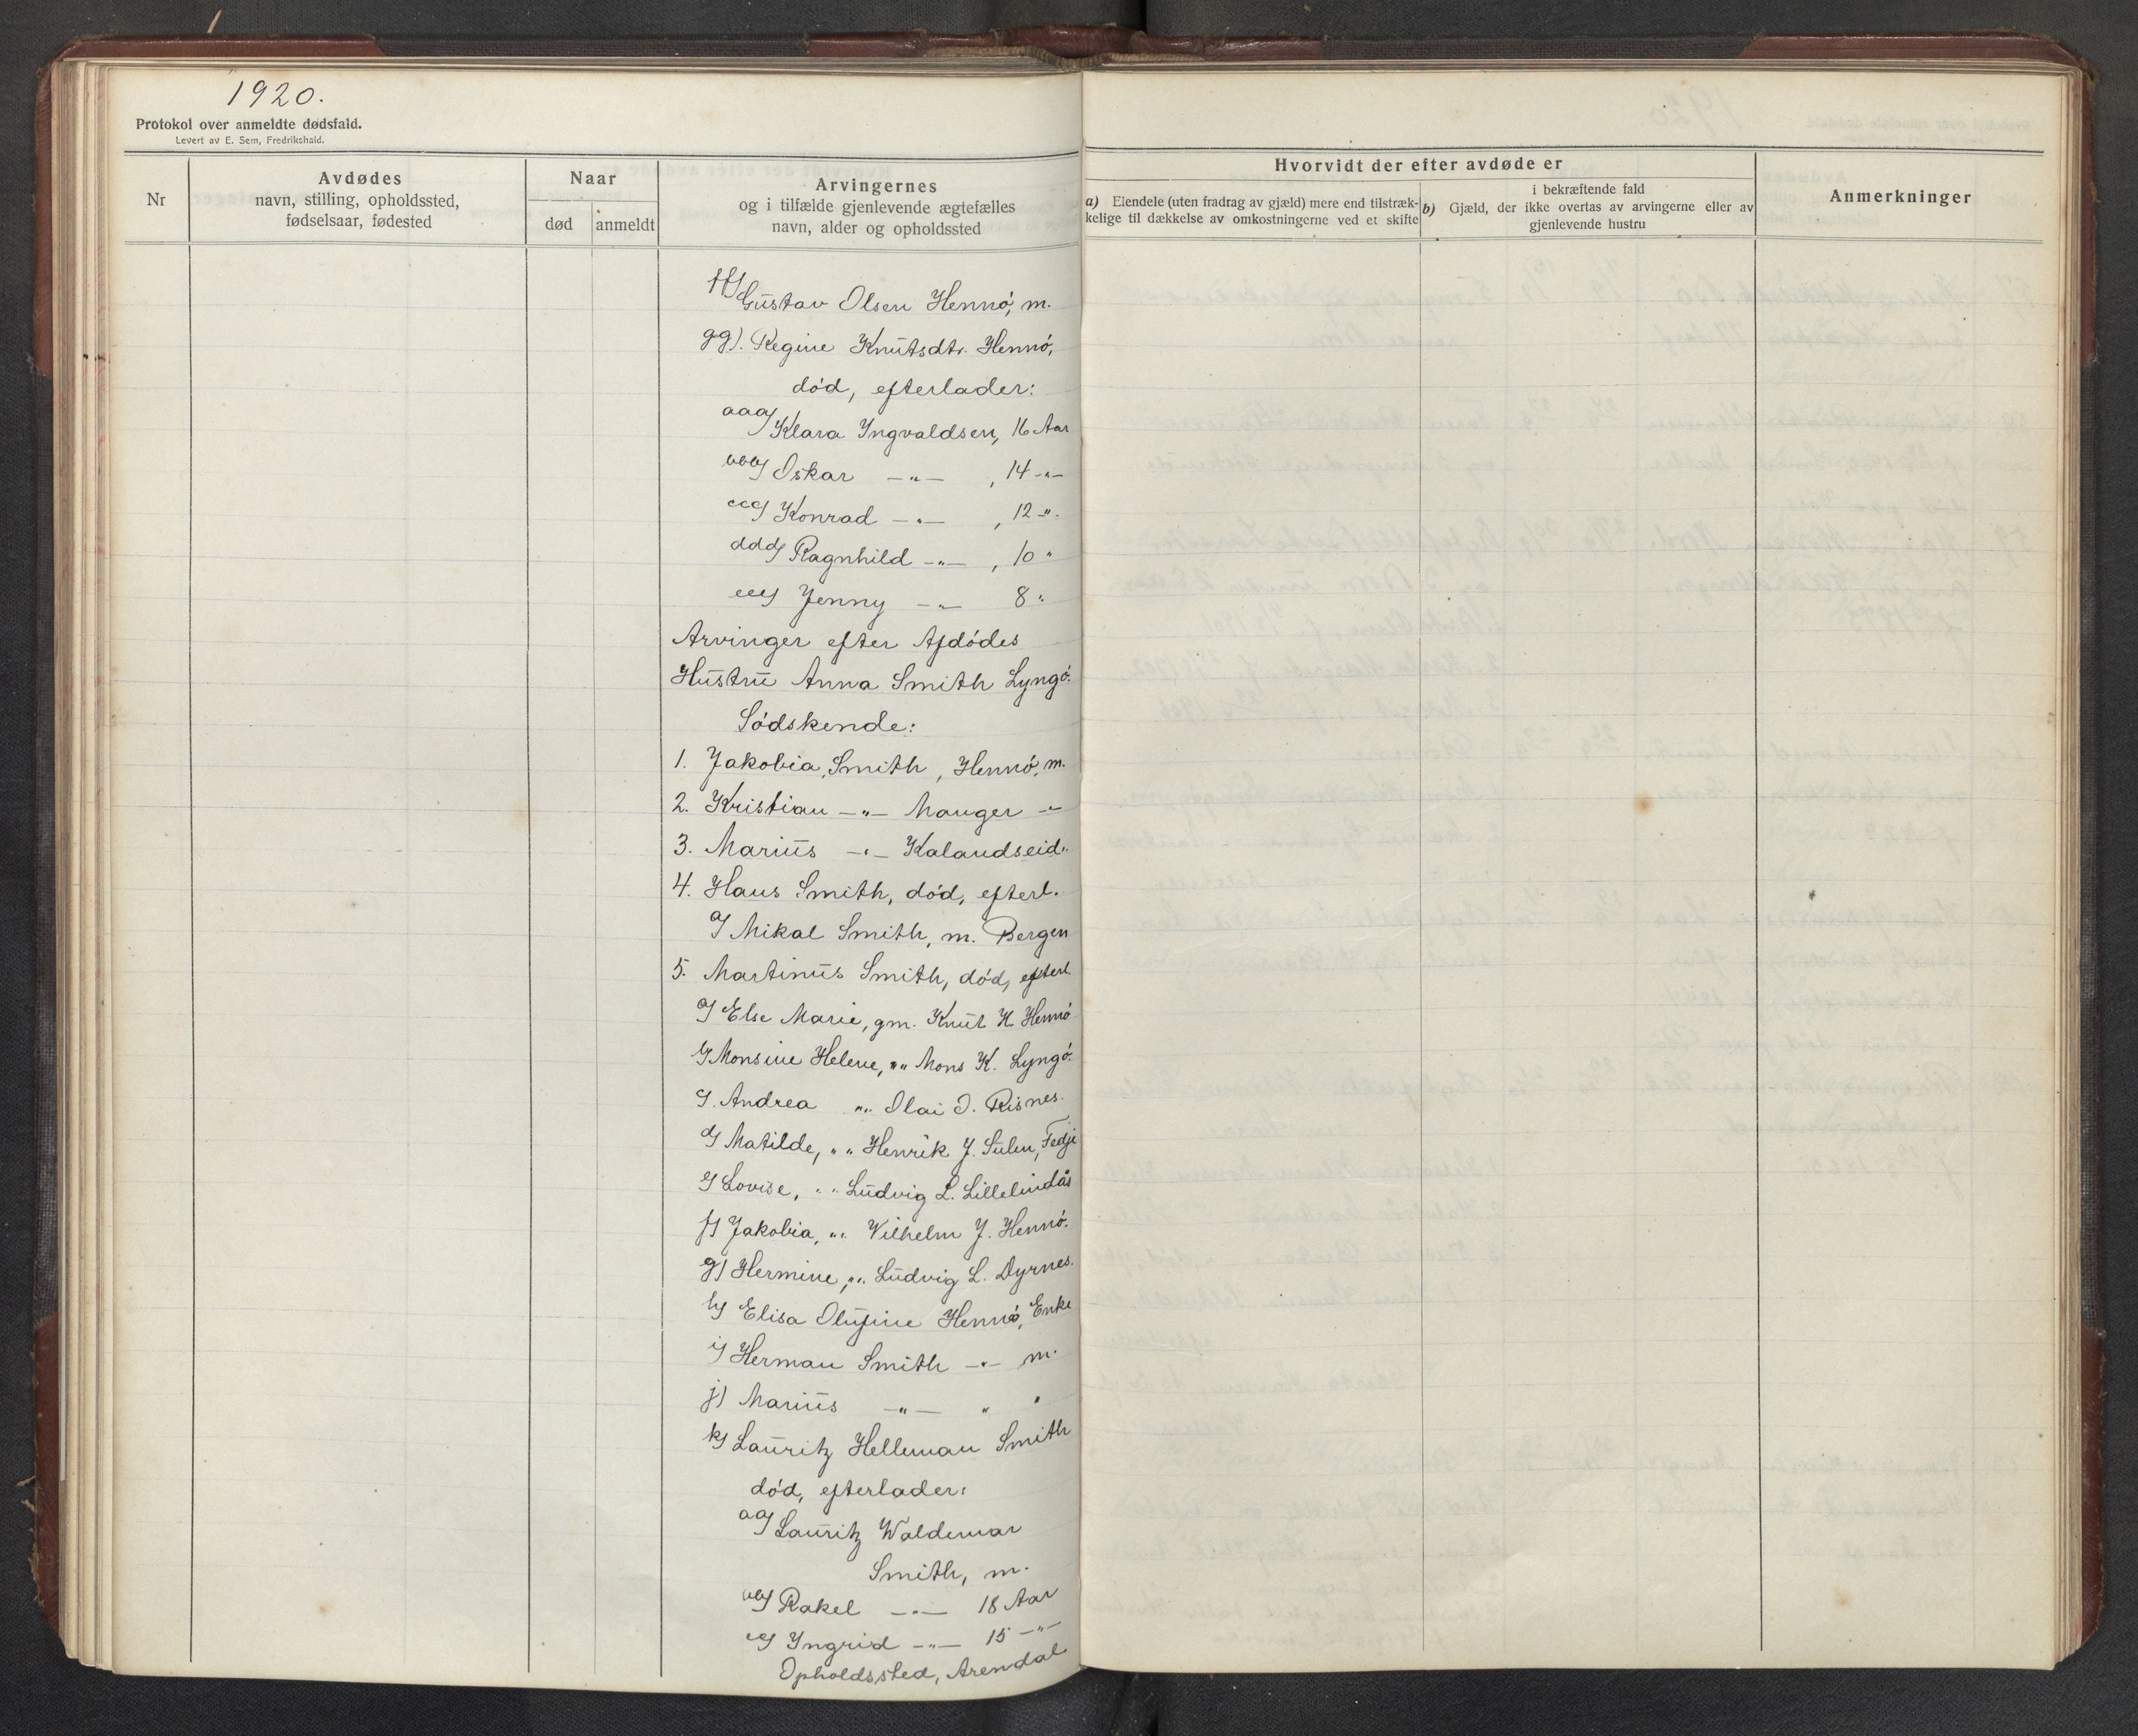 1920.
Protokol over anmeldte dødsfald.
Levert av E. Sem, Fredrikshald.
Nr
Avdødes
navn, stilling, opholdssted,
fødselsaar, fødested
Naar
død
anmeldt
Arvingernes
og i tilfælde gjenlevende ægtefælles
navn, alder og opholdssted
Hvorvidt der efter avdøde er
a) Eiendele (uten fradrag av gjæld) mere end tilstræk-
kelige til dækkelse av omkostningerne ved et skifte
i bekræftende fald
b) Gjæld, der ikke overtas av arvingerne eller av
gjenlevende hustru
Anmerkninger
ff) Gustav Olsen Hennö, m.
gg). Regine Knutsdtr. Hennö,
död, efterlader:
aaa) Klara Yngvaldsen, 16 Aar
bbb) Oskar -"- , 14 -"-
ccc) Konrad -"- , 12 -"-
ddd) Ragnhild -"- , 10 "
eee) Jenny -"- 8 "
Arvinger efter Afdödes
Hustru Anna Smith Lyngö.
Södskende:
1. Jakobia Smith, Hennö, m.
2. Kristian -"- Manger -"-
3. Marius -"- Kalandseid "
4. Hans Smith, död, efterl.
a) Mikal Smith, m. Bergen
5. Martinus Smith, död, efterl.
a) Else Marie, gm. Knut H. Hennö
b) Monsine Helene, "" Mons K. Lyngö.
c). Andrea "" Olai O. Risnes.
d) Matilde, "" Henrik J. Sulen, Fedje
e) Lovise, "" Ludvig L. Lillelindås
f) Jakobia, "" Vilhelm J. Hennö.
g) Hermine, "" Ludvig L. Dyrnes.
h) Elisa Olufine Hennö, Enke
i) Herman Smith -"- m.
j) Marius -"- " "
k) Lauritz Helleman Smith
död, efterlader:
aa) Lauritz Waldemar
Smith, m.
bb) Rakel -"- 18 Aar
cc) Yngrid -"- 15 -"-
Opholdssted, Arendal